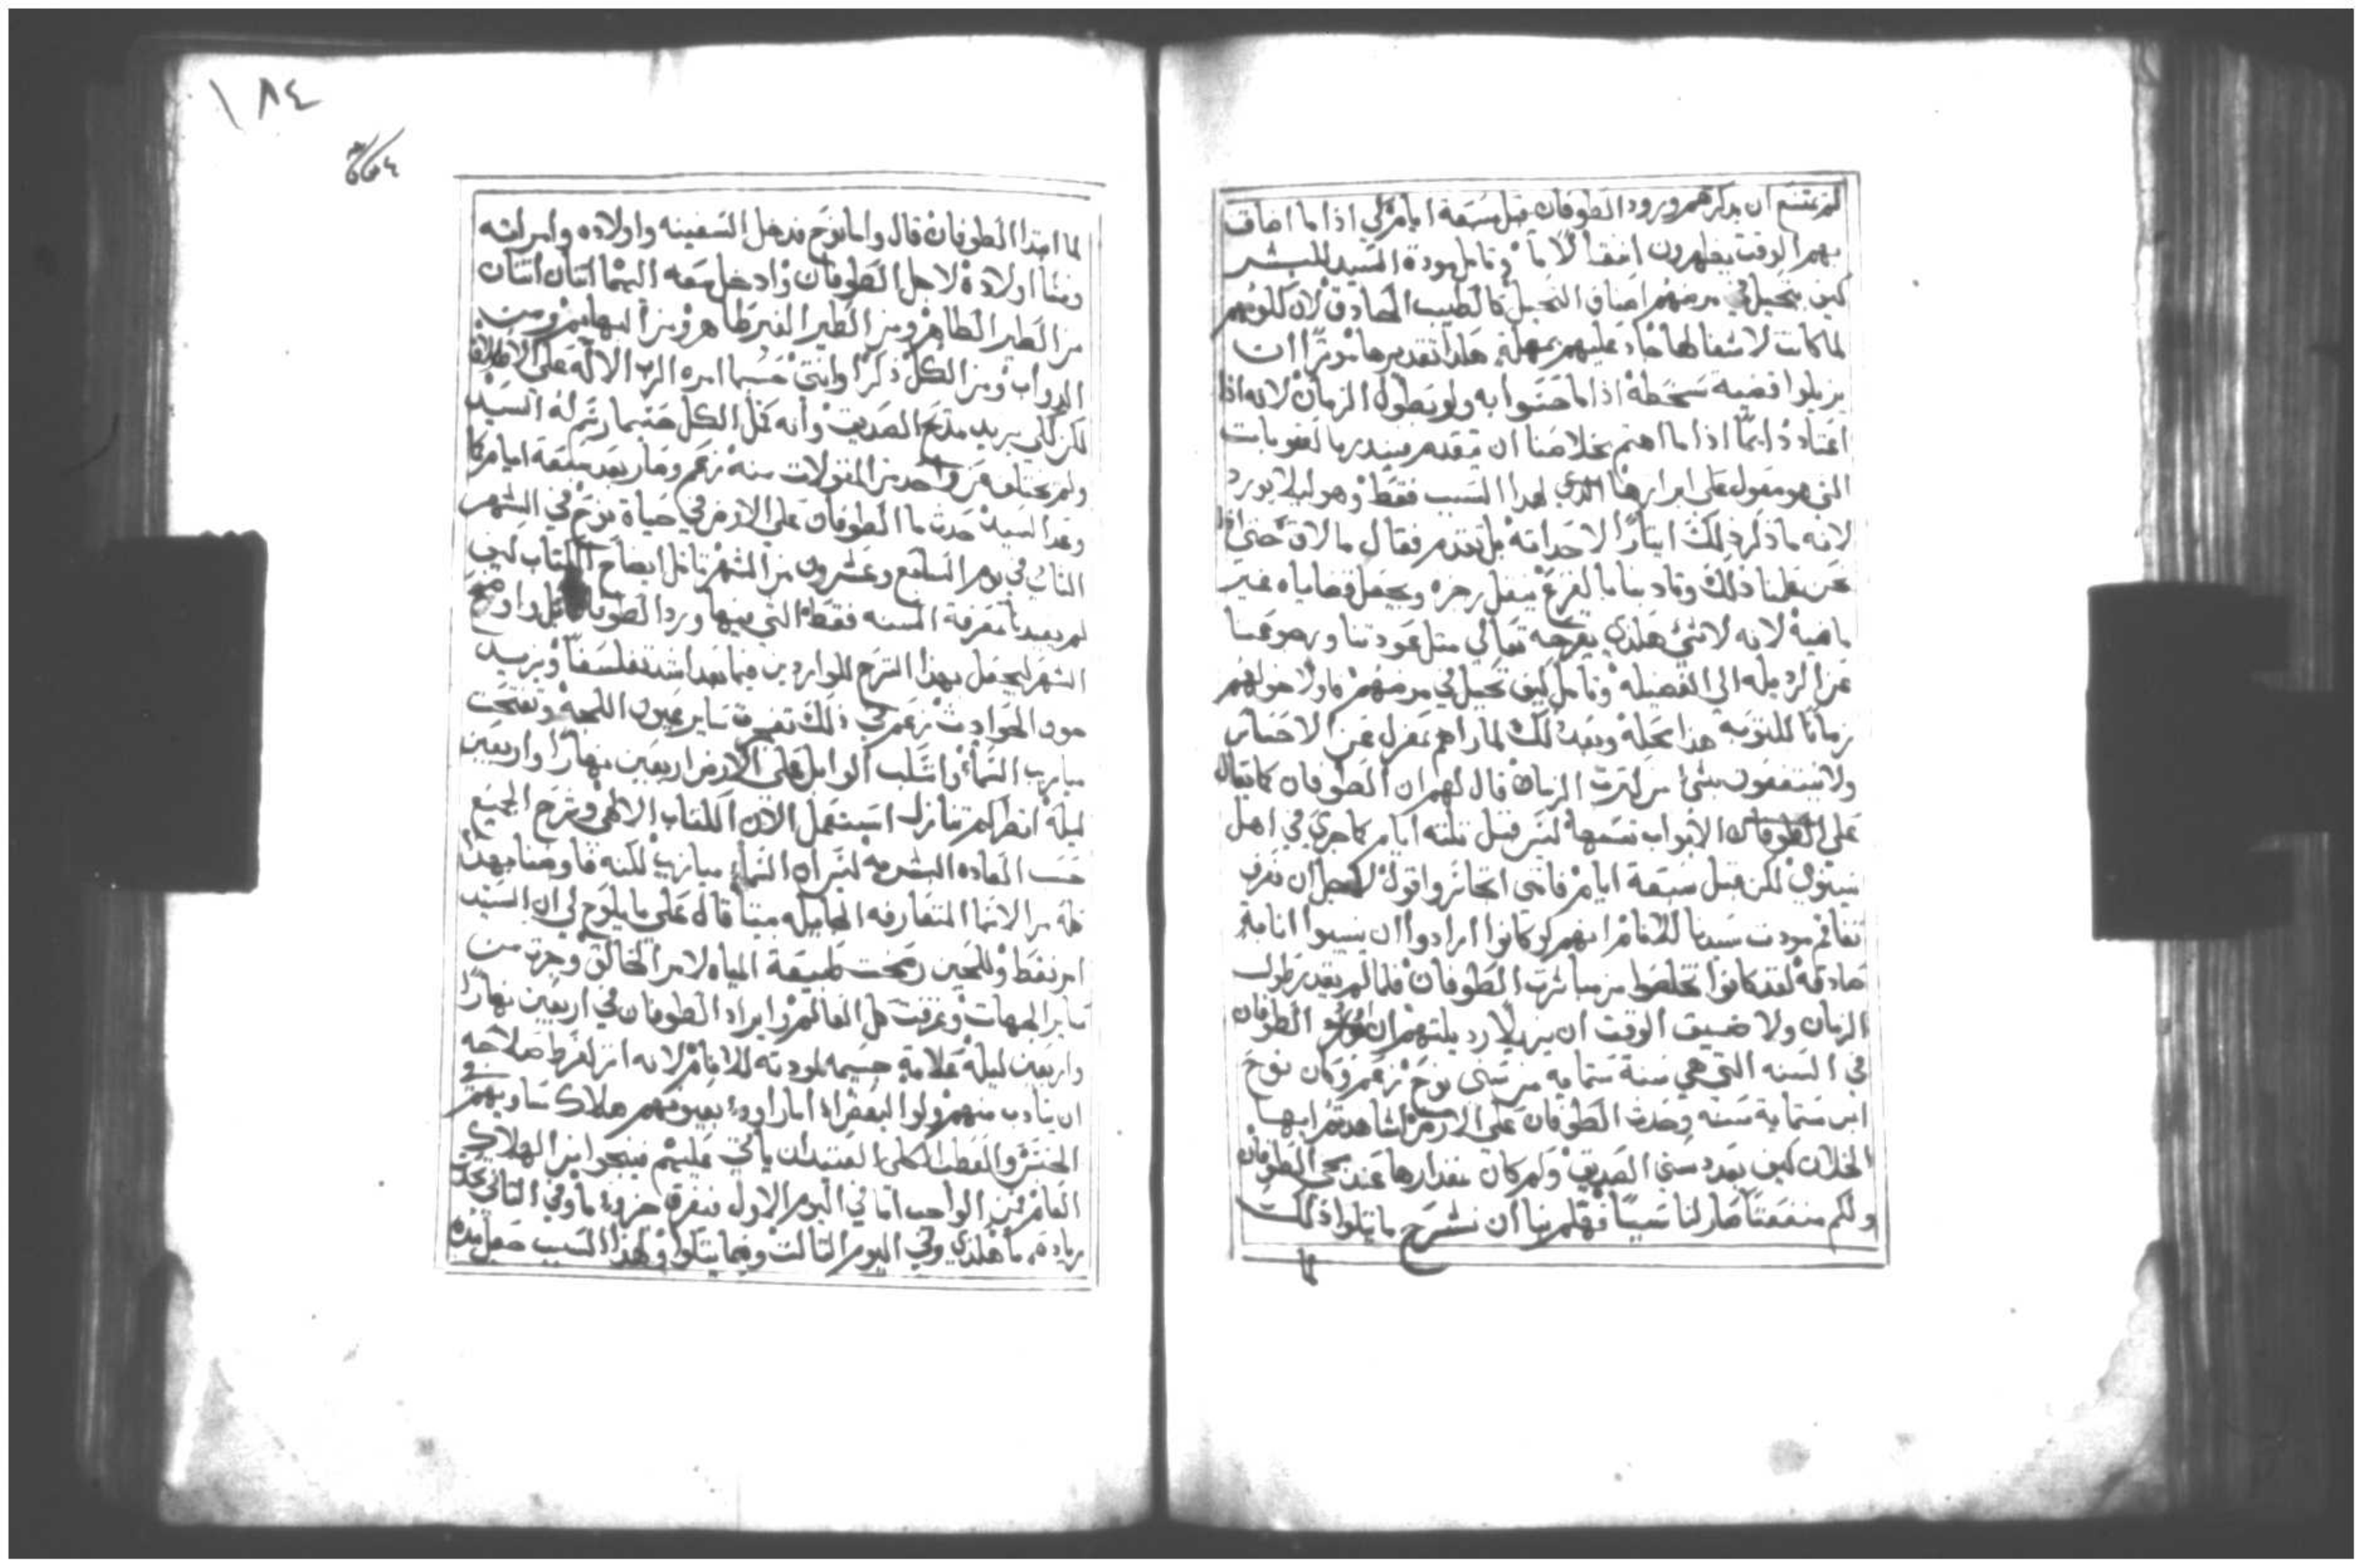 لم يمتنع ان يذكرهم ورود الطوفان قبل سبعة ايام لكي اذا ما اضاق
بهم الوقت يظهرون اتقالاما وتامل مودة السيد للبشر
كيف يتحيل في مرضهم اصناف التحيل كالطبيب الحادق لان كلومهم
لما كانت لا شفا لها جاد عليهم بمهلة هذا تقديرها موترا ان
يزيلوا قضية سخطه اذا ما حتتوا به ولو بطول الزمان لانه اذا
اعتاد دايمًا اذا ما اهتم بخلاصنا ان يتقدم فينذرها لعقوبات
التي هو مقول على ايرادها الذي لهذا السبب فقط وهو ليلا يورد
لانه ما ذكر ذلك ايتارًا لاحداته بل تقدم فقال ما لاق حتي اذا
نحن عقلنا ذلك وتادبنا بالفزع ينقل رجزه ويجعل قضاياه غير
ماضية لانه لا شي هكذي يفرحه تعالي متل عودتنا ورجوعنا
عن الرديله الي الفضيله وتامل كيف تحيل في مرضهم فاولا خولهم
زمانًا للتوبه هذا مبلغه وبعد ذلك لما راهم بمعزل عن الاحساس
ولا ينتفعون بشي من كترت الزمان قال لهم ان الطوفان كما يقال
على الابواب نفسها ليس قبل تلته ايام كما جري في اهل
نينوي لكن قبل سبعة ايام فانني اتجاسر واقول لاجل ان نعرف
تفاقم مودت سيدنا للانام انهم لو كانوا ارادوا ان ينيبوا انابة
صادقة لقد كانوا تخلصوا من مباشرة الطوفان فلما لم يقدر طول
الزمان ولا ضيق الوقت ان يزيلا رديلتهم اورد الطوفان
في السنه التي هي سنة ستمايه من سني نوح زعم وكان نوح
ابن ستماية سنه وحدت الطوفان على الارض اشاهدتم ايها
الخلان كيف يعدد سني الصديق وكم كان مقدارها عند مجي الطوفان
ولكم منفعتًا صار لنا سببًا فهلم بنا ان نشرح ما يتلوا ذلك
لما
١٨٤
لما ابتدا الطوفان قال واما نوح فدخل السفينه واولاده وامراته
ونسا اولاده لاجل الطوفان وادخل معه ايضًا اتنان اتنان
من الطير الطاهر ومن الطير الغير طاهر ومن البهايم ومن
الدواب ومن الكل ذكرًا وانتي حسبما امره الرب الاله على الاطلاق
لكن لكي يزيد مديح الصديق وانه كمل الكل حسبما رسم له السيد
ولم يختلف عن واحد من المقولات منه زعم وصار بعد سبعة ايام كما
وعد السيد حدت ما الطوفان على الارض في حياة نوح في الشهر
التاني في يوم السابع وعشرون من الشهر تامل ايضاح الكتاب كيف
لم يفيدنا معرفة السنه فقط التي فيها ورد الطوفان بل واوضح
الشهر ليجعل بهذا الشرح للواردين فيما بعد افتدا تفلسفًا ويزيد
هول الحوادت زعم في ذلك تفجرت ساير عيون اللجة وتفتحت
ميازيب السما وانسكب الوابل على الارض اربعين نهارًا واربعين
ليلة انظر كم تنازل استعمل الان الكتاب الالهي وشرح الجميع
حسب العاده البشريه ليس ان السما ميازيب لكنه فاوضنا بهذا
كله من الاسما المتعارفه الحاصله بيننا قال على ما يلوح لي ان السيد
امر فقط وللحين رضخت طبيعة المياه لامر الخالق وجرت من
ساير الجهات وغرقت كل العالم وايراد الطوفان في اربعين نهارًا
واربعين ليلة علامة جسيمه لمودته للانام لانه اتر لفرط صلاحه
ان يتادب منهم ولو البعض اذا ما راوا بعيونهم هلاك مساويهم في
الجنس والعطب الكلي العتيد ان ياتي عليهم فينجوا من الهلاك
العام فمن الواجب اما في اليوم الاول فيغرق جزوًا ما وفي التاني تحدت
زيادة ما هكذي وفي اليوم التالت وفيما يتلوا ولهذا السبب جعل مدة